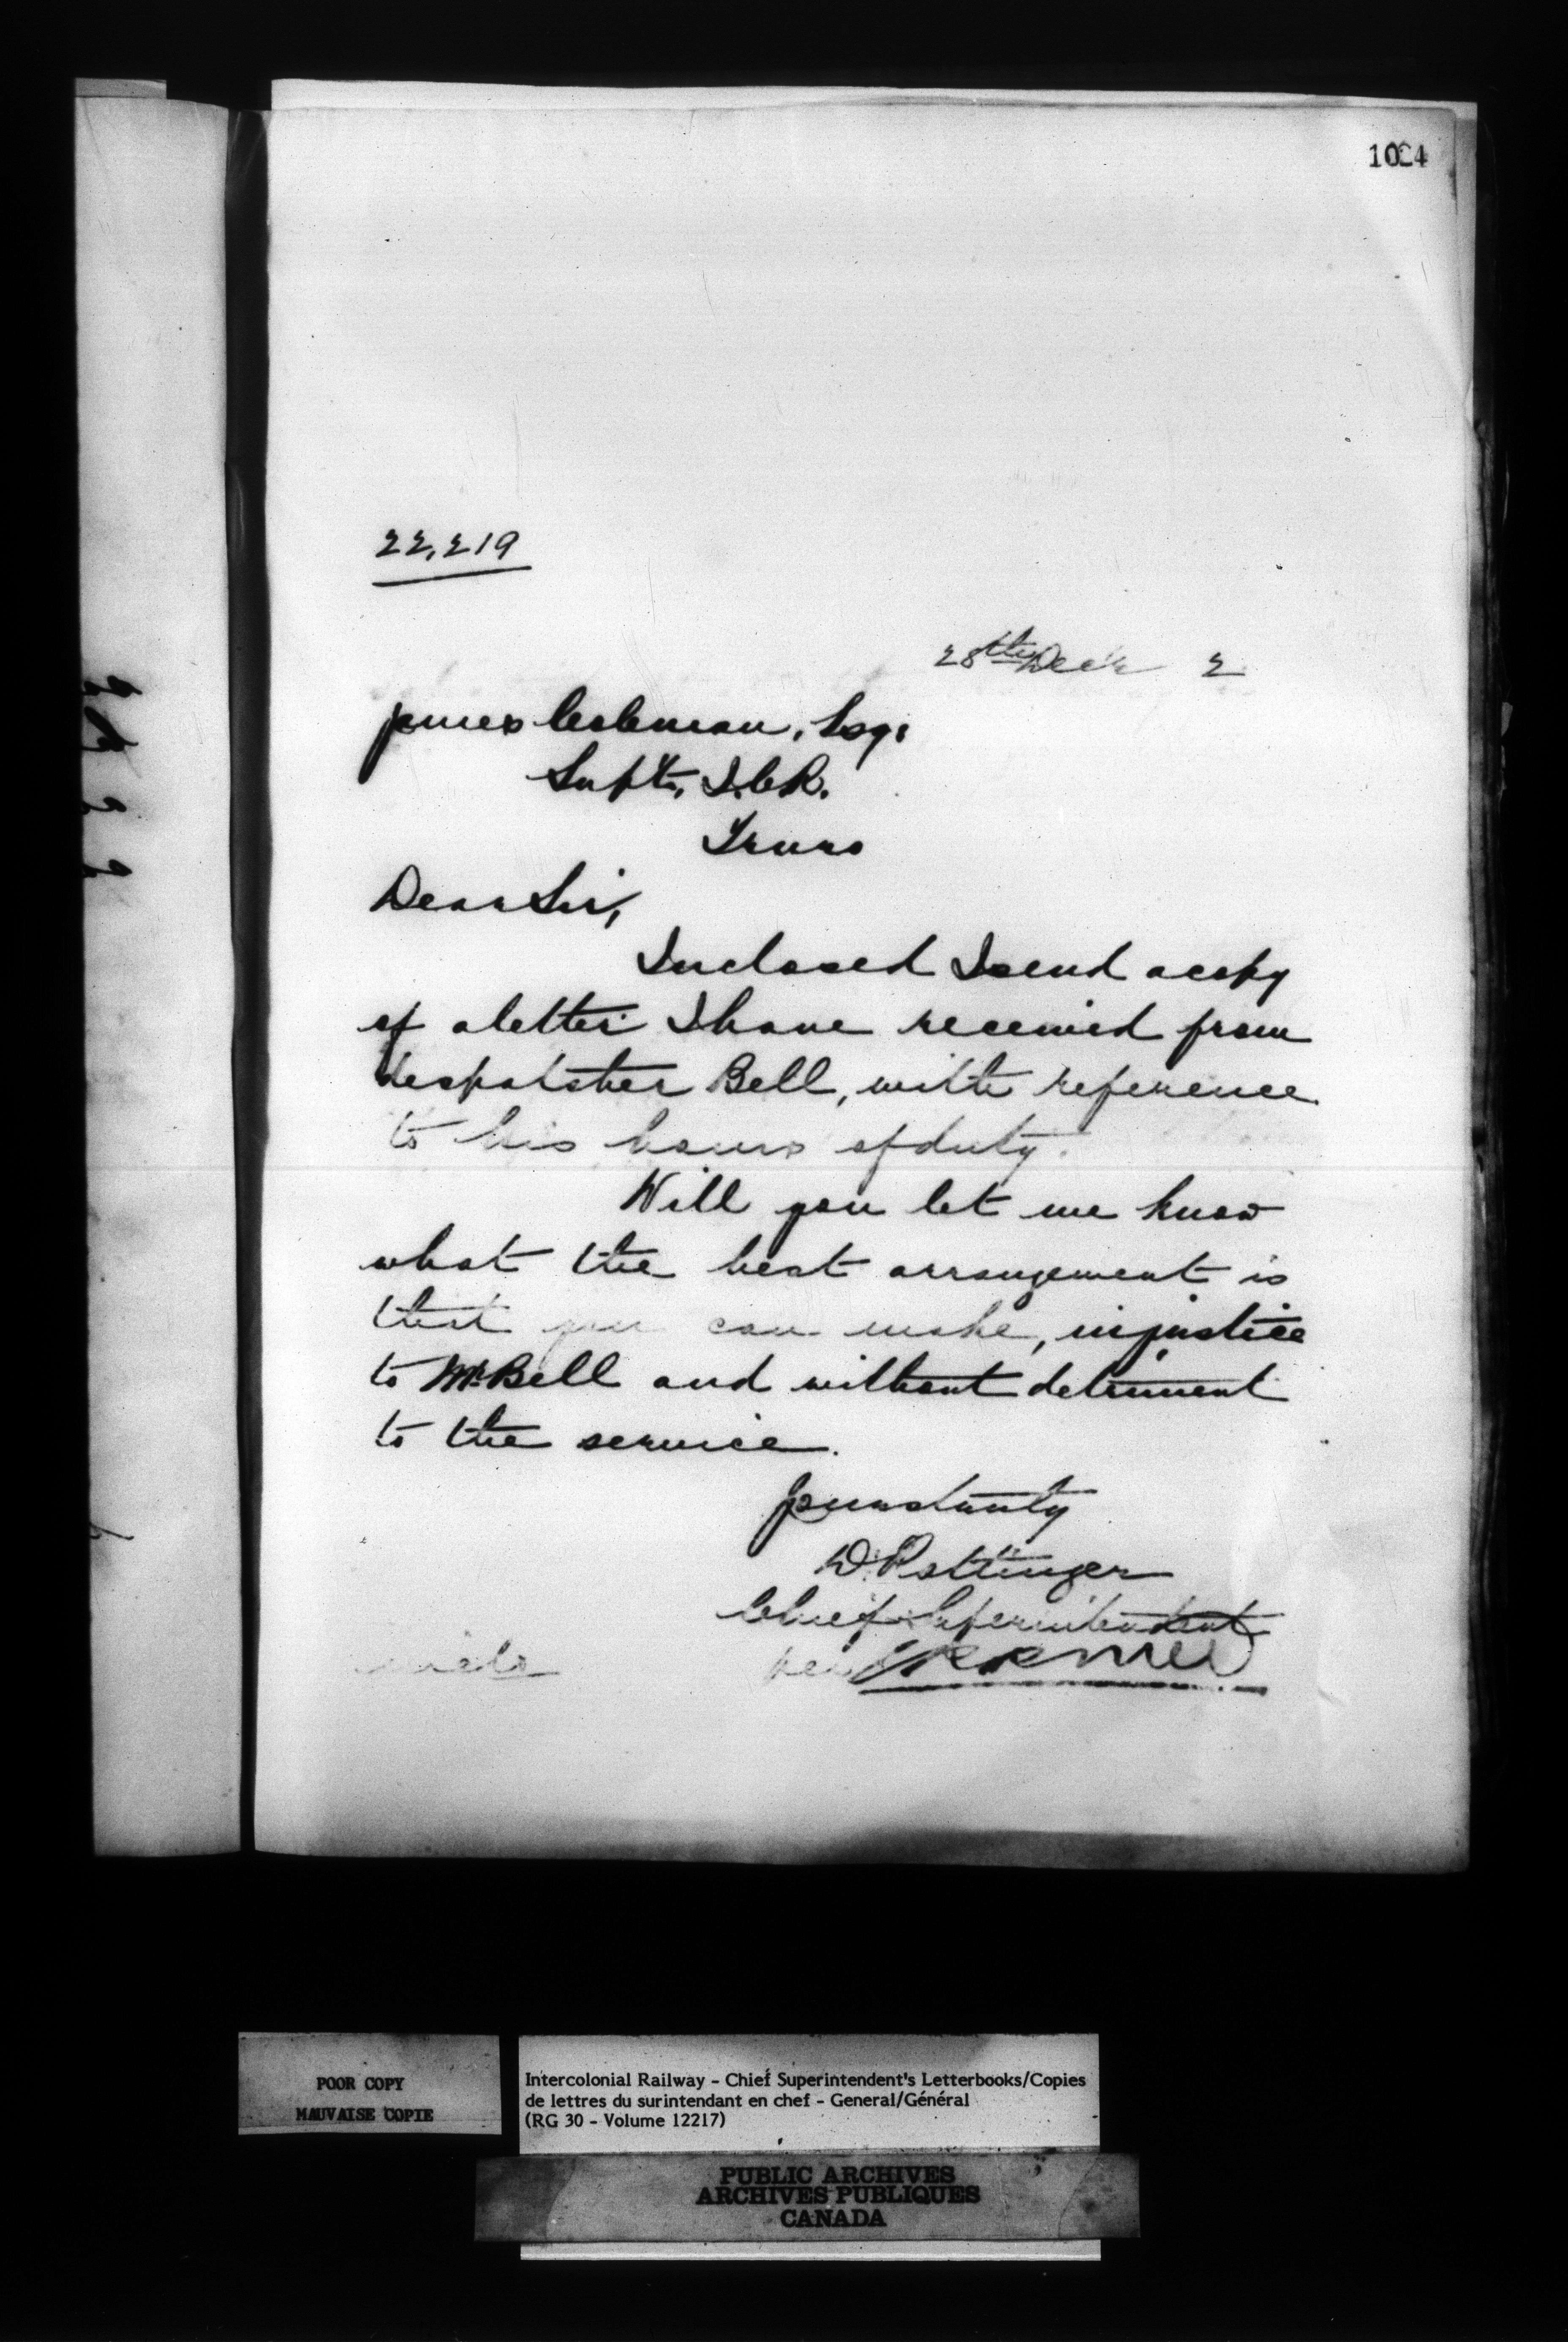 1024
22,219
28th Decr 2
James Coleman, Esq:
Supt., I.C.R.
Truro
Dear Sir,
Inclosed I send a copy
of a letter I have received from
despatcher Bell, with reference
to his hours of duty.
Will you let me know
what the best arrangement is
that you can make, in justice
to Mr. Bell and without detriment
to the service.
Yours truly
D. Pottinger
Chief Superintendent
per
POOR COPY
MAUVAISE COPIE
Intercolonial Railway - Chief Superintendent's Letterbooks/Copies
de lettres du surintendant en chef - General/Général
(RG 30 - Volume 12217)
PUBLIC ARCHIVES
ARCHIVES PUBLIQUES
CANADA